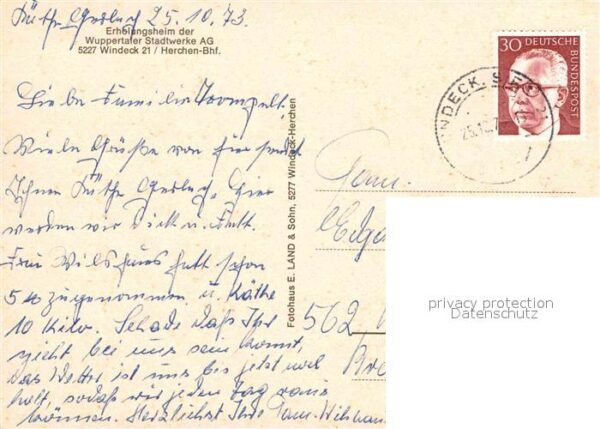 Käthe Gerlach 25.10.73.
Erholungsheim der
Wuppertaler Stadtwerke AG
5227 Windeck 21 / Herchen-Bhf.
30 DEUTSCHE BUNDESPOST
Liebe Familie
Viele Grüße von hier sendet
Ihnen Käthe Gerlach. Hier
werden wir dick u. fett.
Frau hat schon
5 zugenommen u. Käthe
10 Kilo. Schade daß Ihr
nicht bei uns sein könnt,
das Wetter ist uns bis jetzt
hold, sodaß wir jeden Tag raus
können. Herzlichst Ihre Fam.
Fotohaus E. LAND & Sohn, 5277 Windeck-Herchen
Fam.
562
privacy protection
Datenschutz